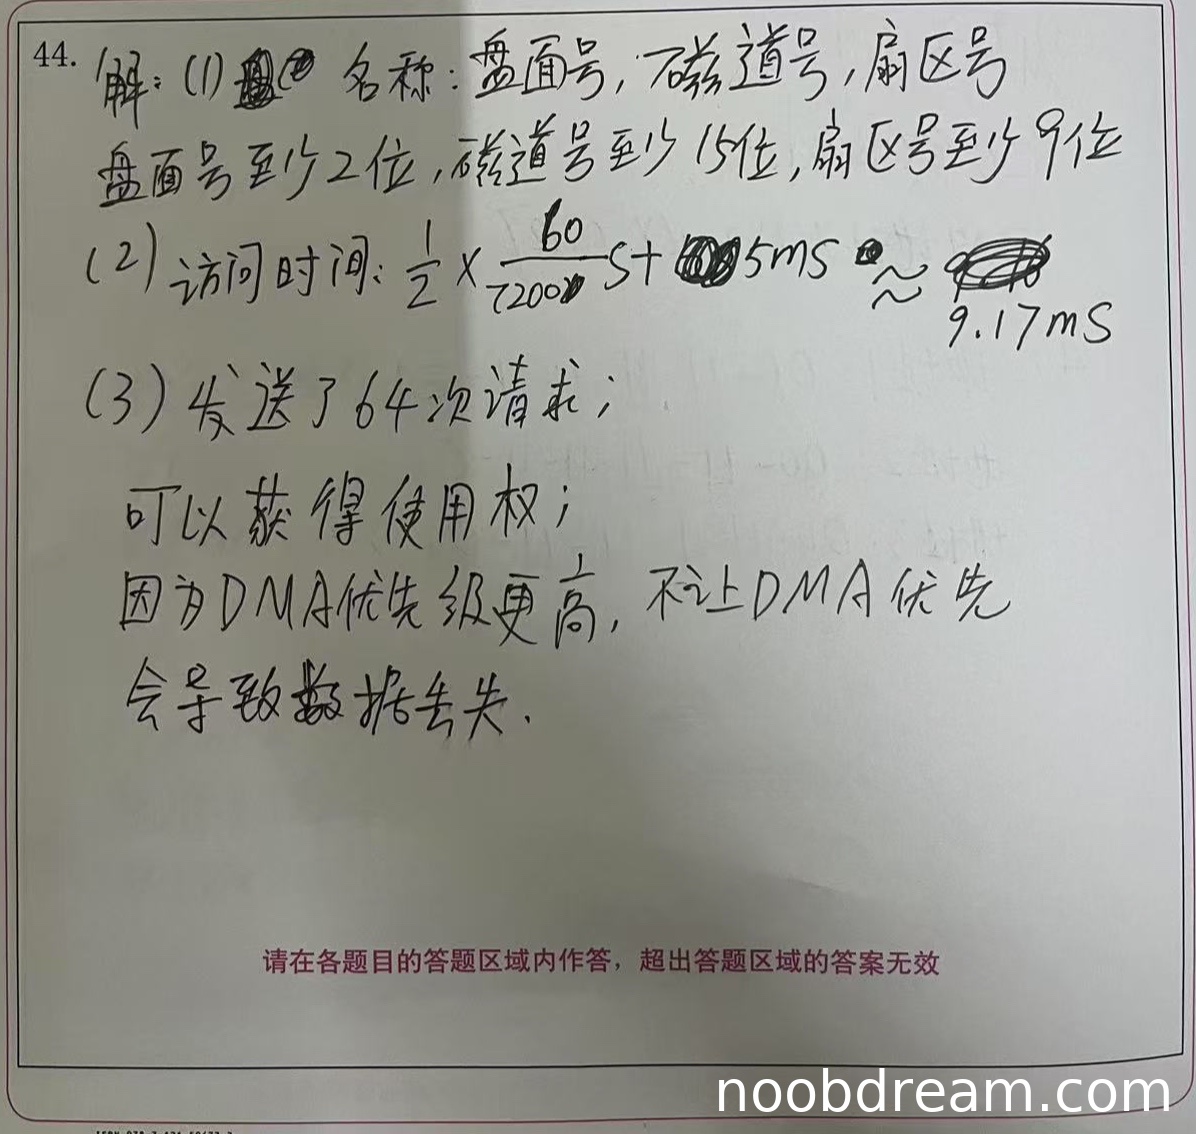 44. 解：(1) 名称：盘面号，磁道号，扇区号
盘面号至少2位，磁道号至少15位，扇区号至少9位
(2) 访问时间：1/2 × 60/7200 s + 5ms ≈
9.17ms
(3) 发送了64次请求；
可以获得使用权；
因为DMA优先级更高，不让DMA优先
会导致数据丢失．
请在各题目的答题区域内作答，超出答题区域的答案无效
noobdream.com